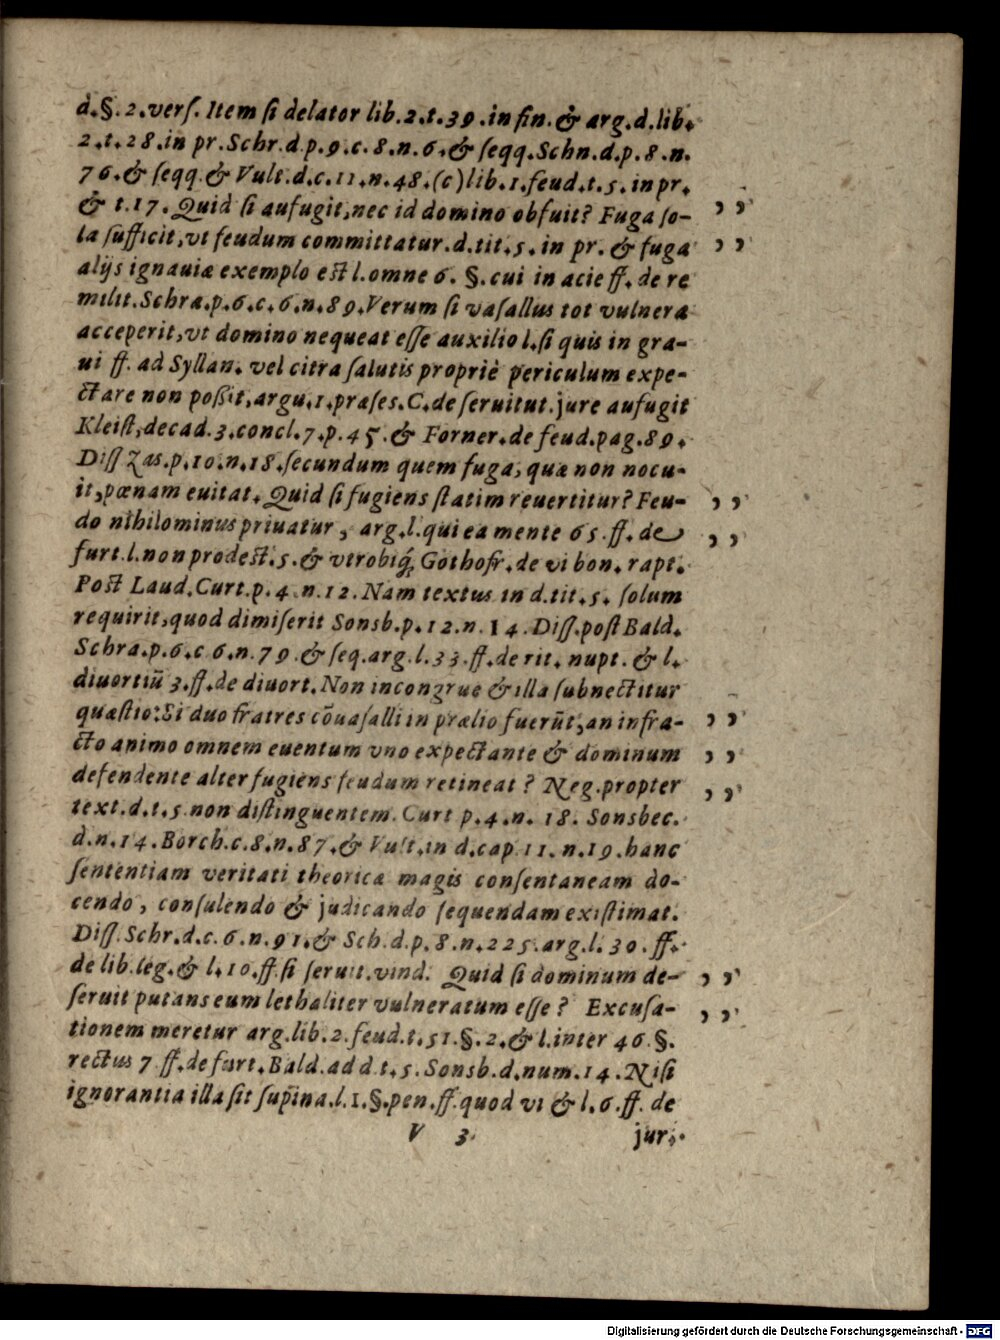 d.§.2.verſ. Item ſi delator lib.2.t.39.in fin.& arg.d.lib.
2.t.28.in pr.Schr.d.p.9.c.8.n.6.& ſeqq.Schn.d.p.8.n.
76.& ſeqq.& Vult.d.c.11.n.48.(c)lib.1.feud.t.5.in pr.
& t.17. Quid ſi aufugit,nec id domino obfuit? Fuga ſo- ,,
la ſufficit,vt feudum committatur.d.tit.5.in pr. & fuga ,,
alijs ignauiæ exemplo eſt l.omne 6. §.cui in acie ff. de re
milit.Schra.p.6.c.6.n.89.Verum ſi vaſallus tot vulnera
acceperit,vt domino nequeat eſſe auxilio l.ſi quis in gra-
ui ff. ad Syllan. vel citra ſalutis propriè periculum expe-
ctare non poßit,argu.1.præſes.C.de ſeruitut.jure aufugit
Kleiſt,decad.3.concl.7.p.45.& Forner.de feud.pag.89.
Diſſ Zas.p.10.n.18.ſecundum quem fuga, quæ non nocu-
it,pœnam euitat. Quid ſi fugiens ſtatim reuertitur? Feu- ,,
do nihilominus priuatur , arg.l.qui ea mente 65.ff. de ,,
furt.l.non prodeſt.5.& vtrobiq́; Gothofr.de vi bon. rapt.
Poſt Laud.Curt.p.4.n.12.Nam textus in d.tit.5. ſolum
requirit,quod dimiſerit Sonsb.p.12.n.14.Diſſ.poſt Bald.
Schra.p.6.c.6.n.79.& ſeq.arg.l.33.ff.de rit. nupt. & l.
diuortiũ 3.ff.de diuort.Non incongrue & illa ſubnectitur
quæſtio:Si duo fratres cõuaſalli in prælio fuerũt,an infra- ,,
cto animo omnem euentum vno expectante & dominum ,,
defendente alter fugiens feudum retineat ? Neg.propter ,,
text.d.t.5.non diſtinguentem. Curt p.4.n. 18. Sonsbec.
d.n.14.Borch.c.8.n.87.& Vult.in d.cap.11.n.19.hanc
ſententiam veritati theoricæ magis conſentaneam do-
cendo , conſulendo & judicando ſequendam exiſtimat.
Diſſ.Schr.d.c.6.n.91.& Sch.d.p.8.n.225.arg.l.30.ff.
de lib.leg.& l.10.ff.ſi ſeruit.vind. Quid ſi dominum de- ,,
ſeruit putans eum lethaliter vulneratum eſſe ? Excuſa- ,,
tionem meretur arg.lib.2.feud.t.51.§.2.& l.inter 46.§.
rectus 7 ff.de furt.Bald.ad d.t.5.Sonsb.d.num.14.Niſi
ignorantia illa ſit ſupina.l.1.§.pen.ff.quod vi & l.6.ff. de
V 3. jur.
Digitalisierung gefördert durch die Deutsche Forschungsgemeinschaft - DFG